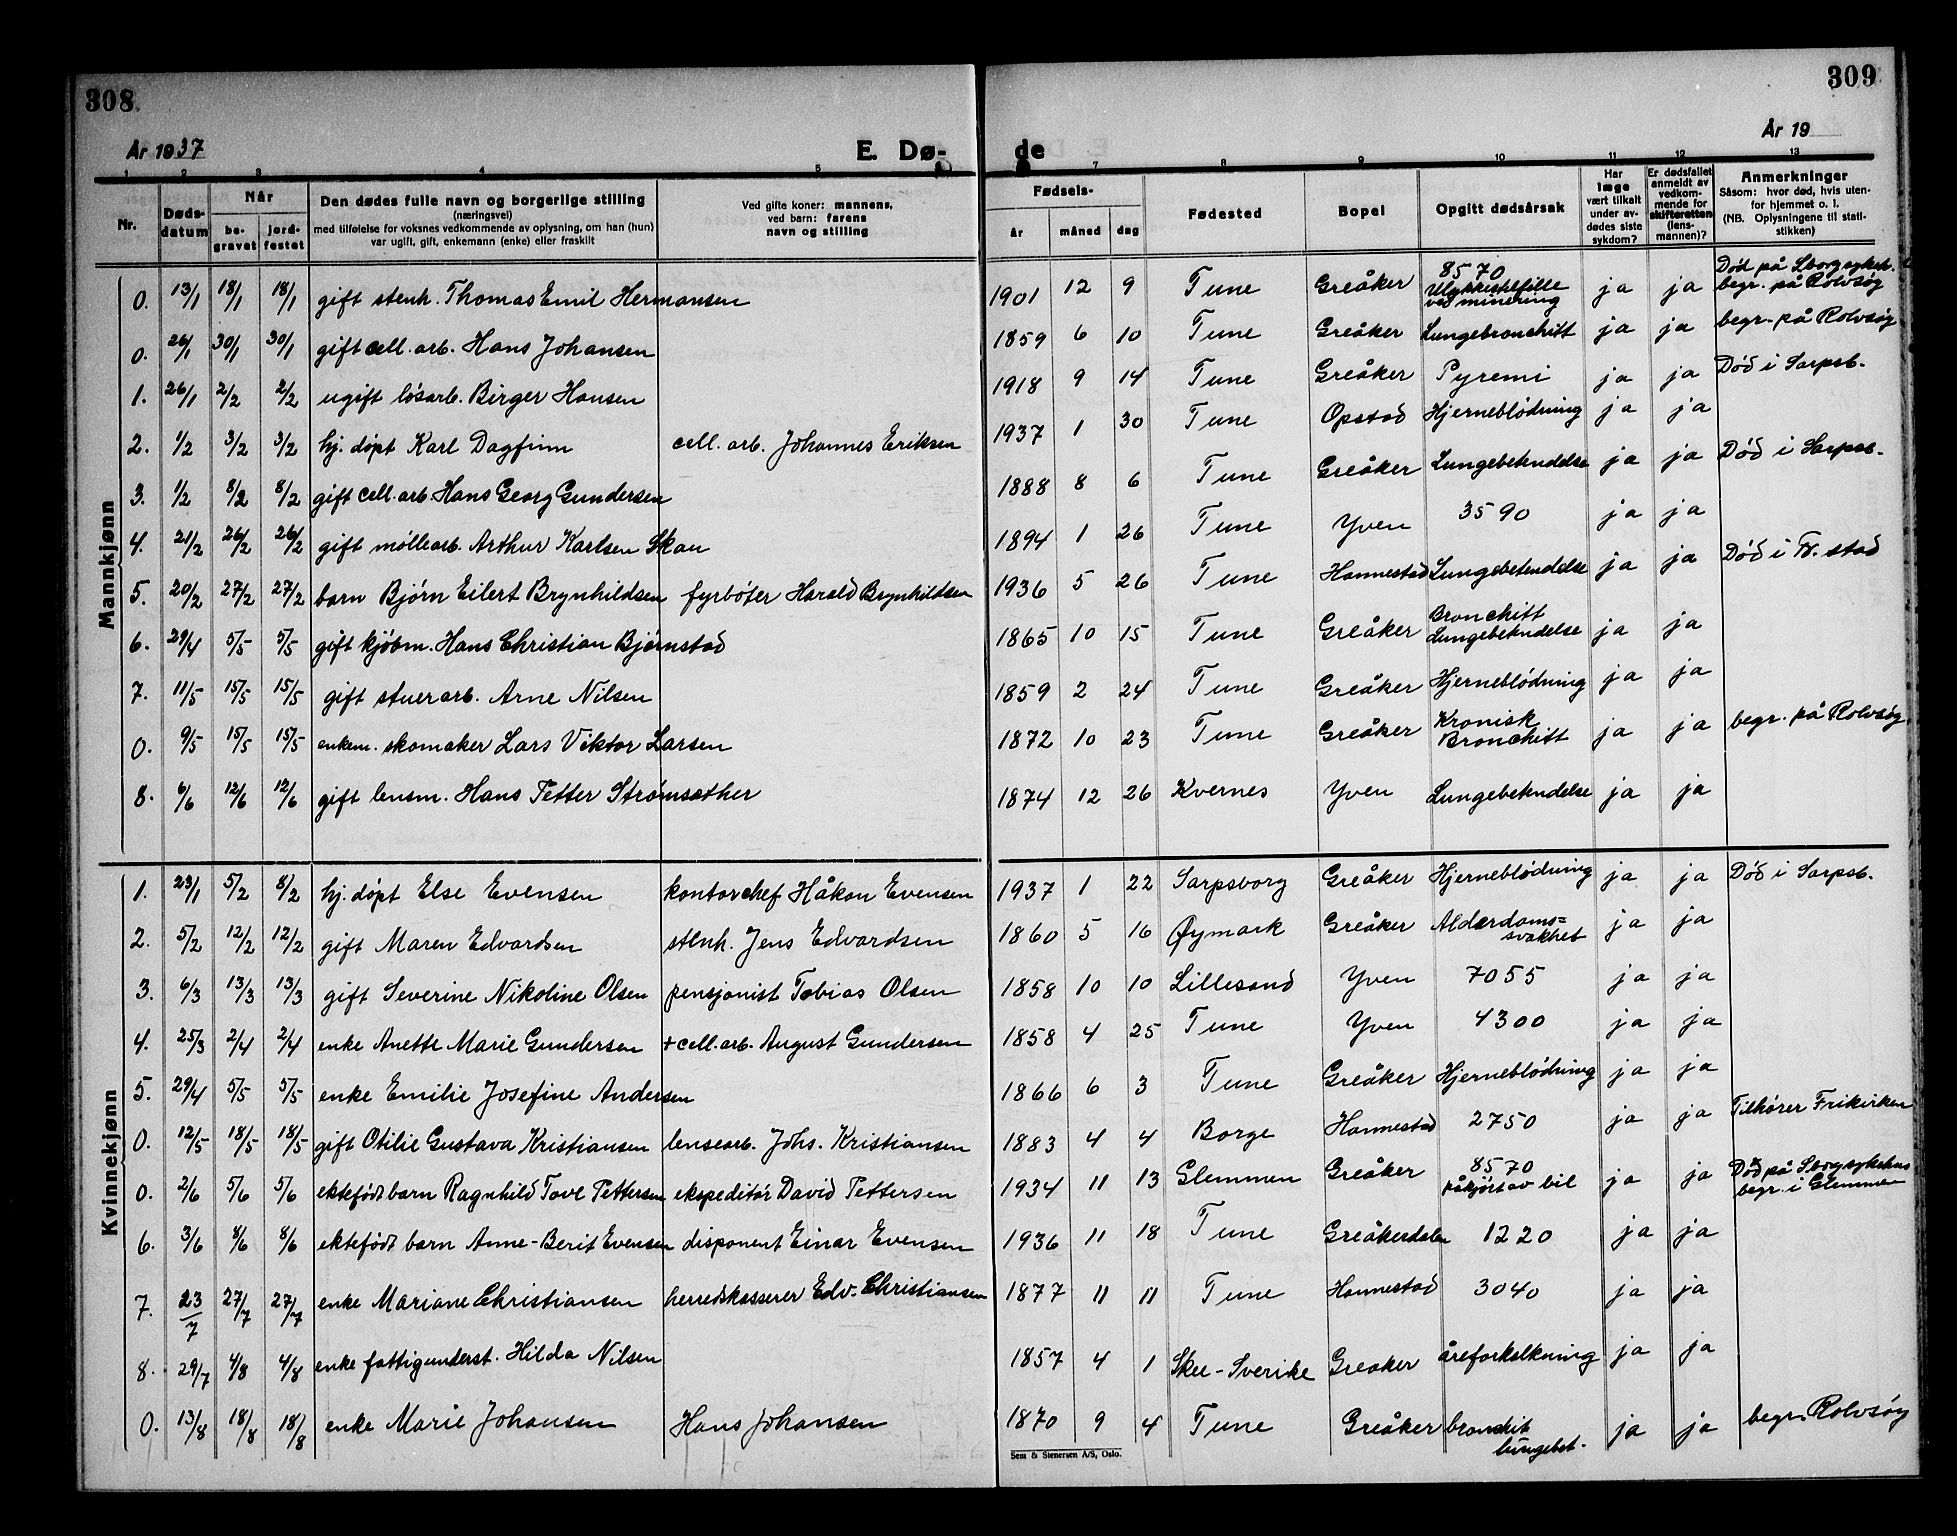 308.
309
År 1937
E. Dø-
de
År 19
1 2 3 4 5 6 7 8 9 10 11 12 13
Nr.
Døds-
datum
Når
be-
gravet
jord-
festet
Den dødes fulle navn og borgerlige stilling
(næringsvei)
med tilføielse for voksnes vedkommende av oplysning, om han (hun)
var ugift, gift, enkemann (enke) eller fraskilt
Ved gifte koner: mannens,
ved barn: farens
navn og stilling
Fødsels-
år måned dag
Fødested
Bopel
Opgitt dødsårsak
Har
læge
vært tilkalt
under av-
dødes siste
sykdom?
Er dødsfallet
anmeldt av
vedkom-
mende for
skifteretten
(lens-
mannen)?
Anmerkninger
Såsom: hvor død, hvis uten-
for hjemmet o. l.
(NB. Oplysningene til stati-
stikken)
Mannkjønn
0. 13/1 18/1 18/1 gift stenh. Thomas Emil Hermansen 1901 12 9 Tune Greåker 8570 Ulykkestilfille ved minering ja ja Død på Sborg sykeh. begr. på Rolvsøy
0. 26/1 30/1 30/1 gift cell. arb. Hans Johansen 1859 6 10 Tune Greåker Lungebronchitt ja ja begr. på Rolvsøy
1. 26/1 2/2 2/2 ugift løsarb. Birger Hansen 1918 9 14 Tune Greåker Pyremi ja ja Død i Sarpsb.
2. 1/2 3/2 3/2 hj. døpt Karl Dagfinn cell. arb. Johannes Eriksen 1937 1 30 Tune Opstad Hjerneblødning ja ja
3. 1/2 8/2 8/2 gift cell. arb. Hans Georg Gundersen 1888 8 6 Tune Greåker Lungebetendelse ja ja Død i Sarpsb.
4. 21/2 26/2 26/2 gift møllearb. Arthur Karlsen Skau 1894 1 26 Tune Yven 3590 ja ja
5. 20/2 27/2 27/2 barn Bjørn Eilert Brynhildsen fyrbøter Harald Brynhildsen 1936 5 26 Tune Hannestad Lungebetendelse ja ja Død i Fr. stad
6. 29/4 5/5 5/5 gift kjøbm. Hans Christian Bjørnstad 1865 10 15 Tune Greåker Bronchitt Lungebetendelse ja ja
7. 11/5 15/5 15/5 gift stuerarb. Arne Nilsen 1859 2 24 Tune Greåker Hjerneblødning ja ja
0. 9/5 15/5 15/5 enkem. skomaker Lars Viktor Larsen 1872 10 23 Tune Greåker Kronisk Bronchitt ja ja begr. på Rolvsøy.
8. 6/6 12/6 12/6 gift lensm. Hans Petter Strømsæther 1874 12 26 Kvernes Yven Lungebetendelse ja ja
Kvinnekjønn
1. 23/1 5/2 8/2 hj. døpt Else Evensen kontorchef Håkon Evensen 1937 1 22 Sarpsborg Greåker Hjerneblødning ja ja Død i Sarpsb.
2. 5/2 12/2 12/2 gift Maren Edvardsen stenh. Jens Edvardsen 1860 5 16 Øymark Greåker Alderdoms= svakhet ja ja
3. 6/3 13/3 13/3 gift Severine Nikoline Olsen pensjonist Tobias Olsen 1858 10 10 Lillesand Yven 7055 ja ja
4. 25/3 2/4 2/4 enke Anette Marie Gundersen + cell. arb. August Gundersen 1858 4 25 Tune Yven 4300 ja ja
5. 29/4 5/5 5/5 enke Emilie Josefine Andersen 1866 6 3 Tune Greåker Hjerneblødning ja ja
0. 12/5 18/5 18/5 gift Otilie Gustava Kristiansen lensearb. Johs. Kristiansen 1883 4 4 Borge Hannestad 2750 ja ja Tilhører Frikirken
0. 2/6 5/6 5/6 ektefødt barn Ragnhild Tove Pettersen ekspeditør David Pettersen 1934 11 13 Glemmen Greåker 8570 påkjørt av bil ja ja Død på Sborg sykehus begr. i Glemmen
6. 3/6 8/6 8/6 ektefødt barn Anne-Berit Evensen disponent Einar Evensen 1936 11 18 Tune Greåkerdalen 1220 ja ja
7. 23/7 27/7 27/7 enke Mariane Christiansen herredskasserer Edv. Christiansen 1877 11 11 Tune Hannestad 3040 ja ja
8. 29/7 4/8 4/8 enke fattigunderst. Hilda Nilsen 1857 4 1 Skee-Sverike Greaker åreforkalkning ja ja
0. 13/8 18/8 18/8 enke Marie Johansen Hans Johansen 1870 9 4 Tune Greåker bronchit lungebet. ja ja begr. Rolvsøy
Sem & Stenersen A/S, Oslo.